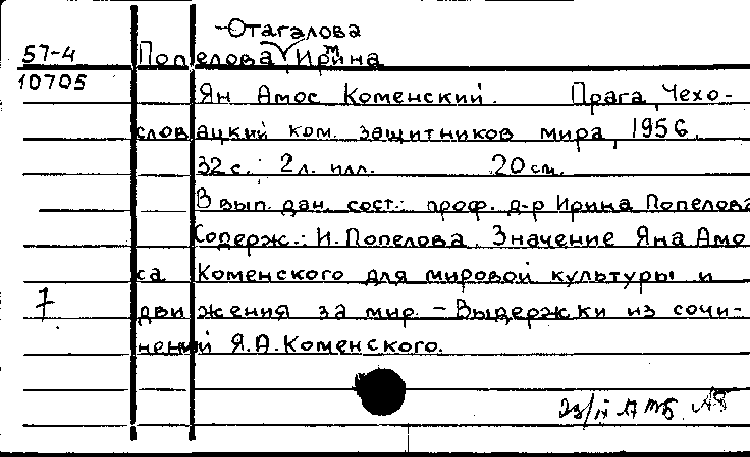 -Отагалова
57-4 Попелова Ирина
10705
Ян Амос Коменский. Прага, Чехо-
словацкий ком. защитников мира, 1956.
32 с.; 2 л. илл. 20 см.
В вып. дан. сост.: проф. д-р Ирина Попелова
Содерж.: И. Попелова. Значение Яна Амо
са Коменского для мировой культуры и
7 движения за мир. - Выдержки из сочи-
нений Я.А. Коменского.